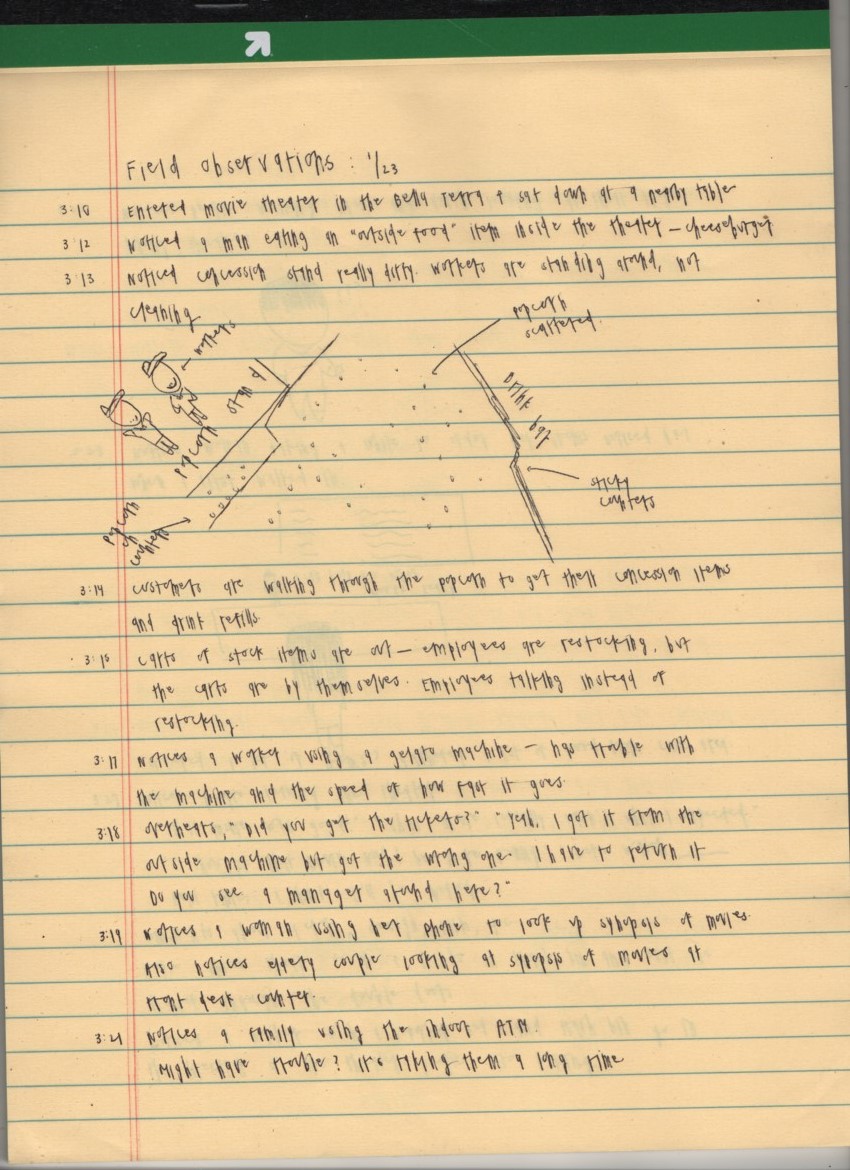 Field observations : 1/23
3:10 Entered movie theater in the Bella Terra + sat down at a nearby table
3:12 Noticed a man eating an "outside food" item inside the theater — cheeseburger
3:13 Noticed concession stand really dirty. workers are standing around, not
cleaning
workers
popcorn stand
popcorn scattered
Drink bar
sticky counters
popcorn on counters
3:14 customers are walking through the popcorn to get their concession items
and drink refills
3:15 carts of stock items are out — employees are restocking, but
the carts are by themselves. Employees talking instead of
restocking.
3:17 Notices a worker using a gelato machine — has trouble with
the machine and the speed of how fast it goes.
3:18 overhears, "Did you get the tickets?" "Yeah, I got it from the
outside machine but got the wrong one. I have to return it
Do you see a manager around here?"
3:19 Notices a woman using her phone to look up synopsis of movies.
Also notices elderly couple looking at synopsis of movies at
front desk counter.
3:21 Notices a family using the indoor ATM.
Might have trouble? It's taking them a long time